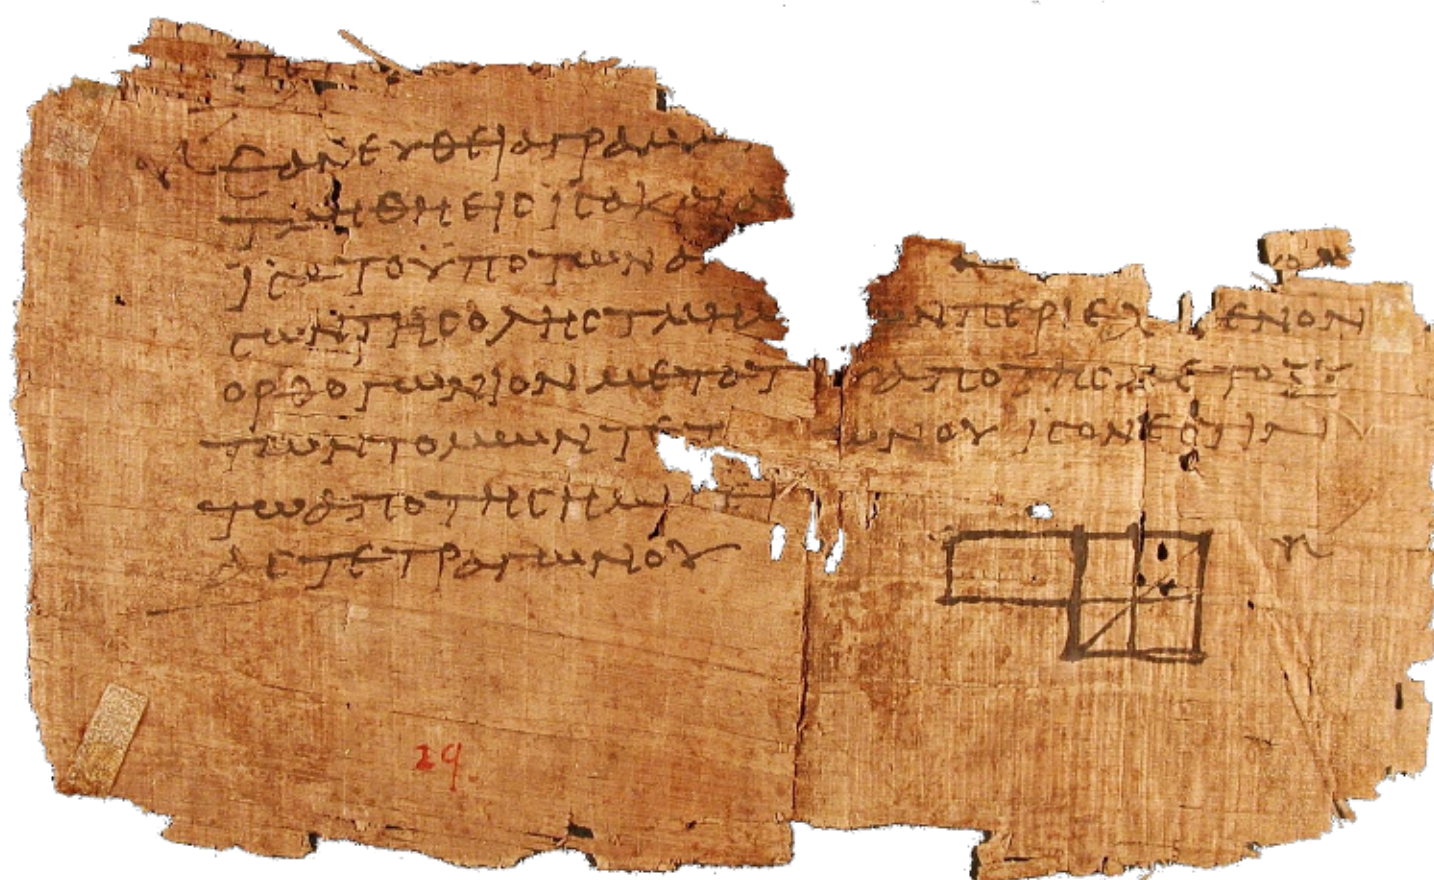 ΕΑΝ ΕΥΘΕΙΑ ΓΡΑΜΜ
ΤΜΗΘΗ ΕΙC ΙCΑ ΚΑΙ Α
ΙCΑ ΤΟ ΫΠΟ ΤΩΝ Α
CΩΝ ΤΗC ΟΛΗC ΤΜΗΜ ΩΝ ΠΕΡΙΕΧ ΕΝΟΝ
ΟΡΘΟΓΩΝΙΟΝ ΜΕΤΑ ΤΟΥ ΑΠΟ ΤΗC ΜΕΤΟΞΥ
ΤΩΝ ΤΟΜΩΝ ΤΕΤ ΩΝΟΥ ΙCΟΝ ΕCΤΙΝ
ΤΩ ΑΠΟ ΤΗC ΗΜΙ
ΑC ΤΕΤΡΑΓΩΝΟΥ
29.